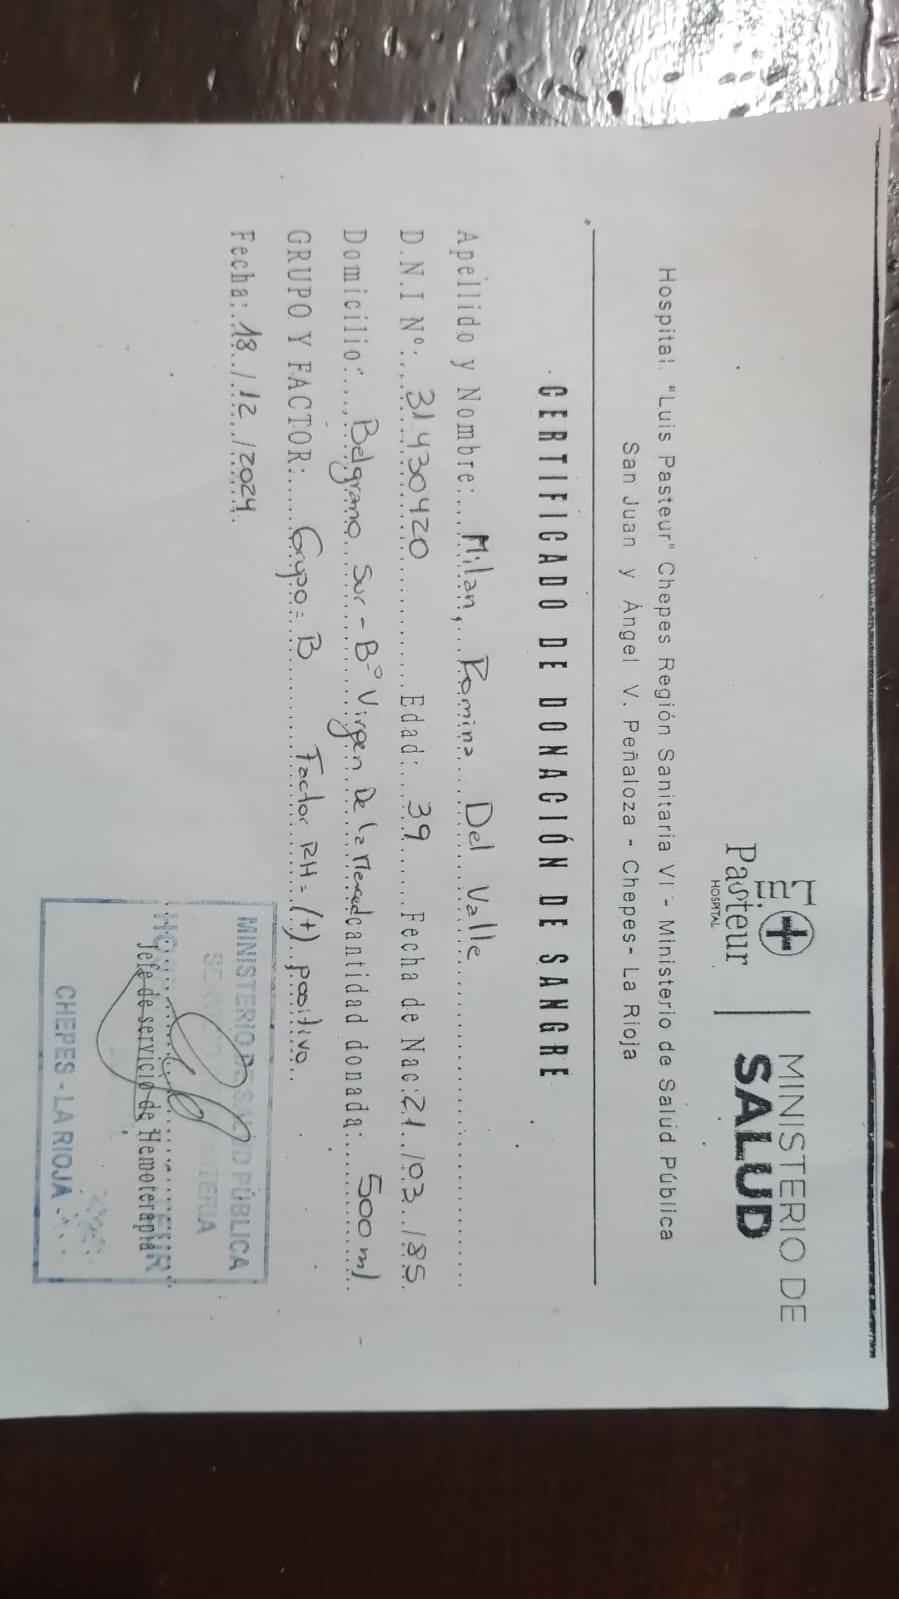 Pasteur
HOSPITAL
MINISTERIO DE
SALUD
Hospital "Luis Pasteur" Chepes Región Sanitaria VI - Ministerio de Salud Pública
San Juan y Ángel V. Peñaloza - Chepes- La Rioja
CERTIFICADO DE DONACIÓN DE SANGRE
Apellido y Nombre: Milan, Romina Del Valle
D.N.I Nº: 31.430420 Edad: 39 Fecha de Nac: 21/03/85
Domicilio: Belgrano Sur - Bº Virgen De la Merced cantidad donada: 500 ml
GRUPO Y FACTOR: Grupo = B Factor RH = (+) positivo
Fecha: 18/12/2024
MINISTERIO DE SALUD PÚBLICA
Jefe de servicio de Hemoterapia
CHEPES - LA RIOJA